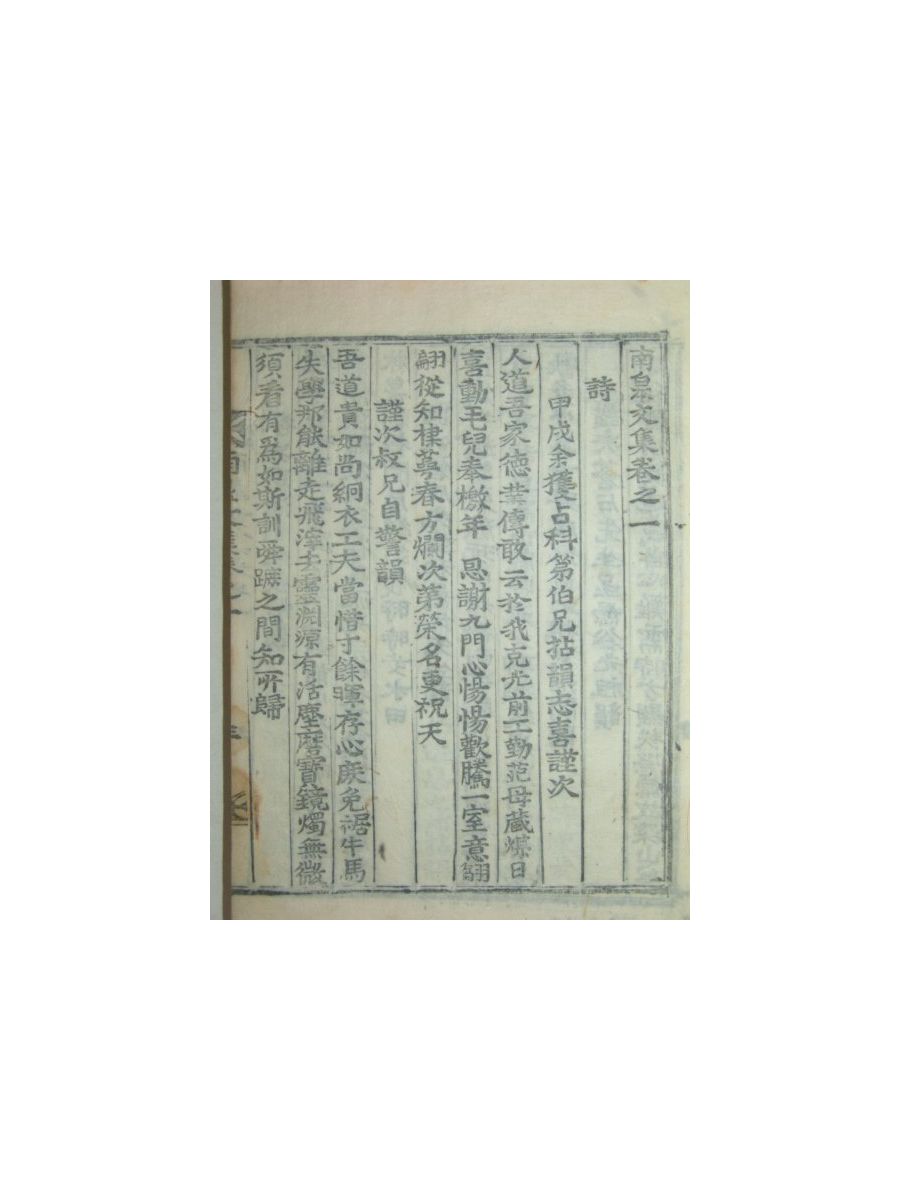 南泉文集卷之一
詩
甲戌余獲占科第伯兄拈韻志喜謹次
人道吾家德業傳敢云於我克光前工勤范母藏煤日
喜動毛兒奉檄年 恩謝九門心惕惕歡騰一室意翩
翩從知棣萼春方爛次第榮名更祝天
謹次叔兄自警韻
吾道貴如尚絅衣工夫當惜寸餘暉存心庶免裾牛馬
失學那能離走飛滓去靈淵源有活塵磨寶鏡燭無微
須看有爲如斯訓舜蹠之間知所歸